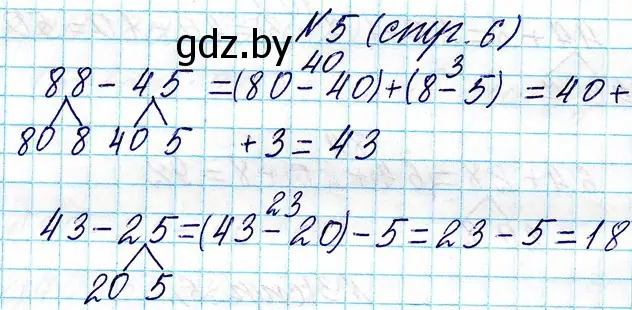 N5 (стр. 6)
gdz.by
40 3
88 - 45 = (80 - 40) + (8 - 5) = 40 +
80 8 40 5 + 3 = 43
23
43 - 25 = (43 - 20) - 5 = 23 - 5 = 18
20 5